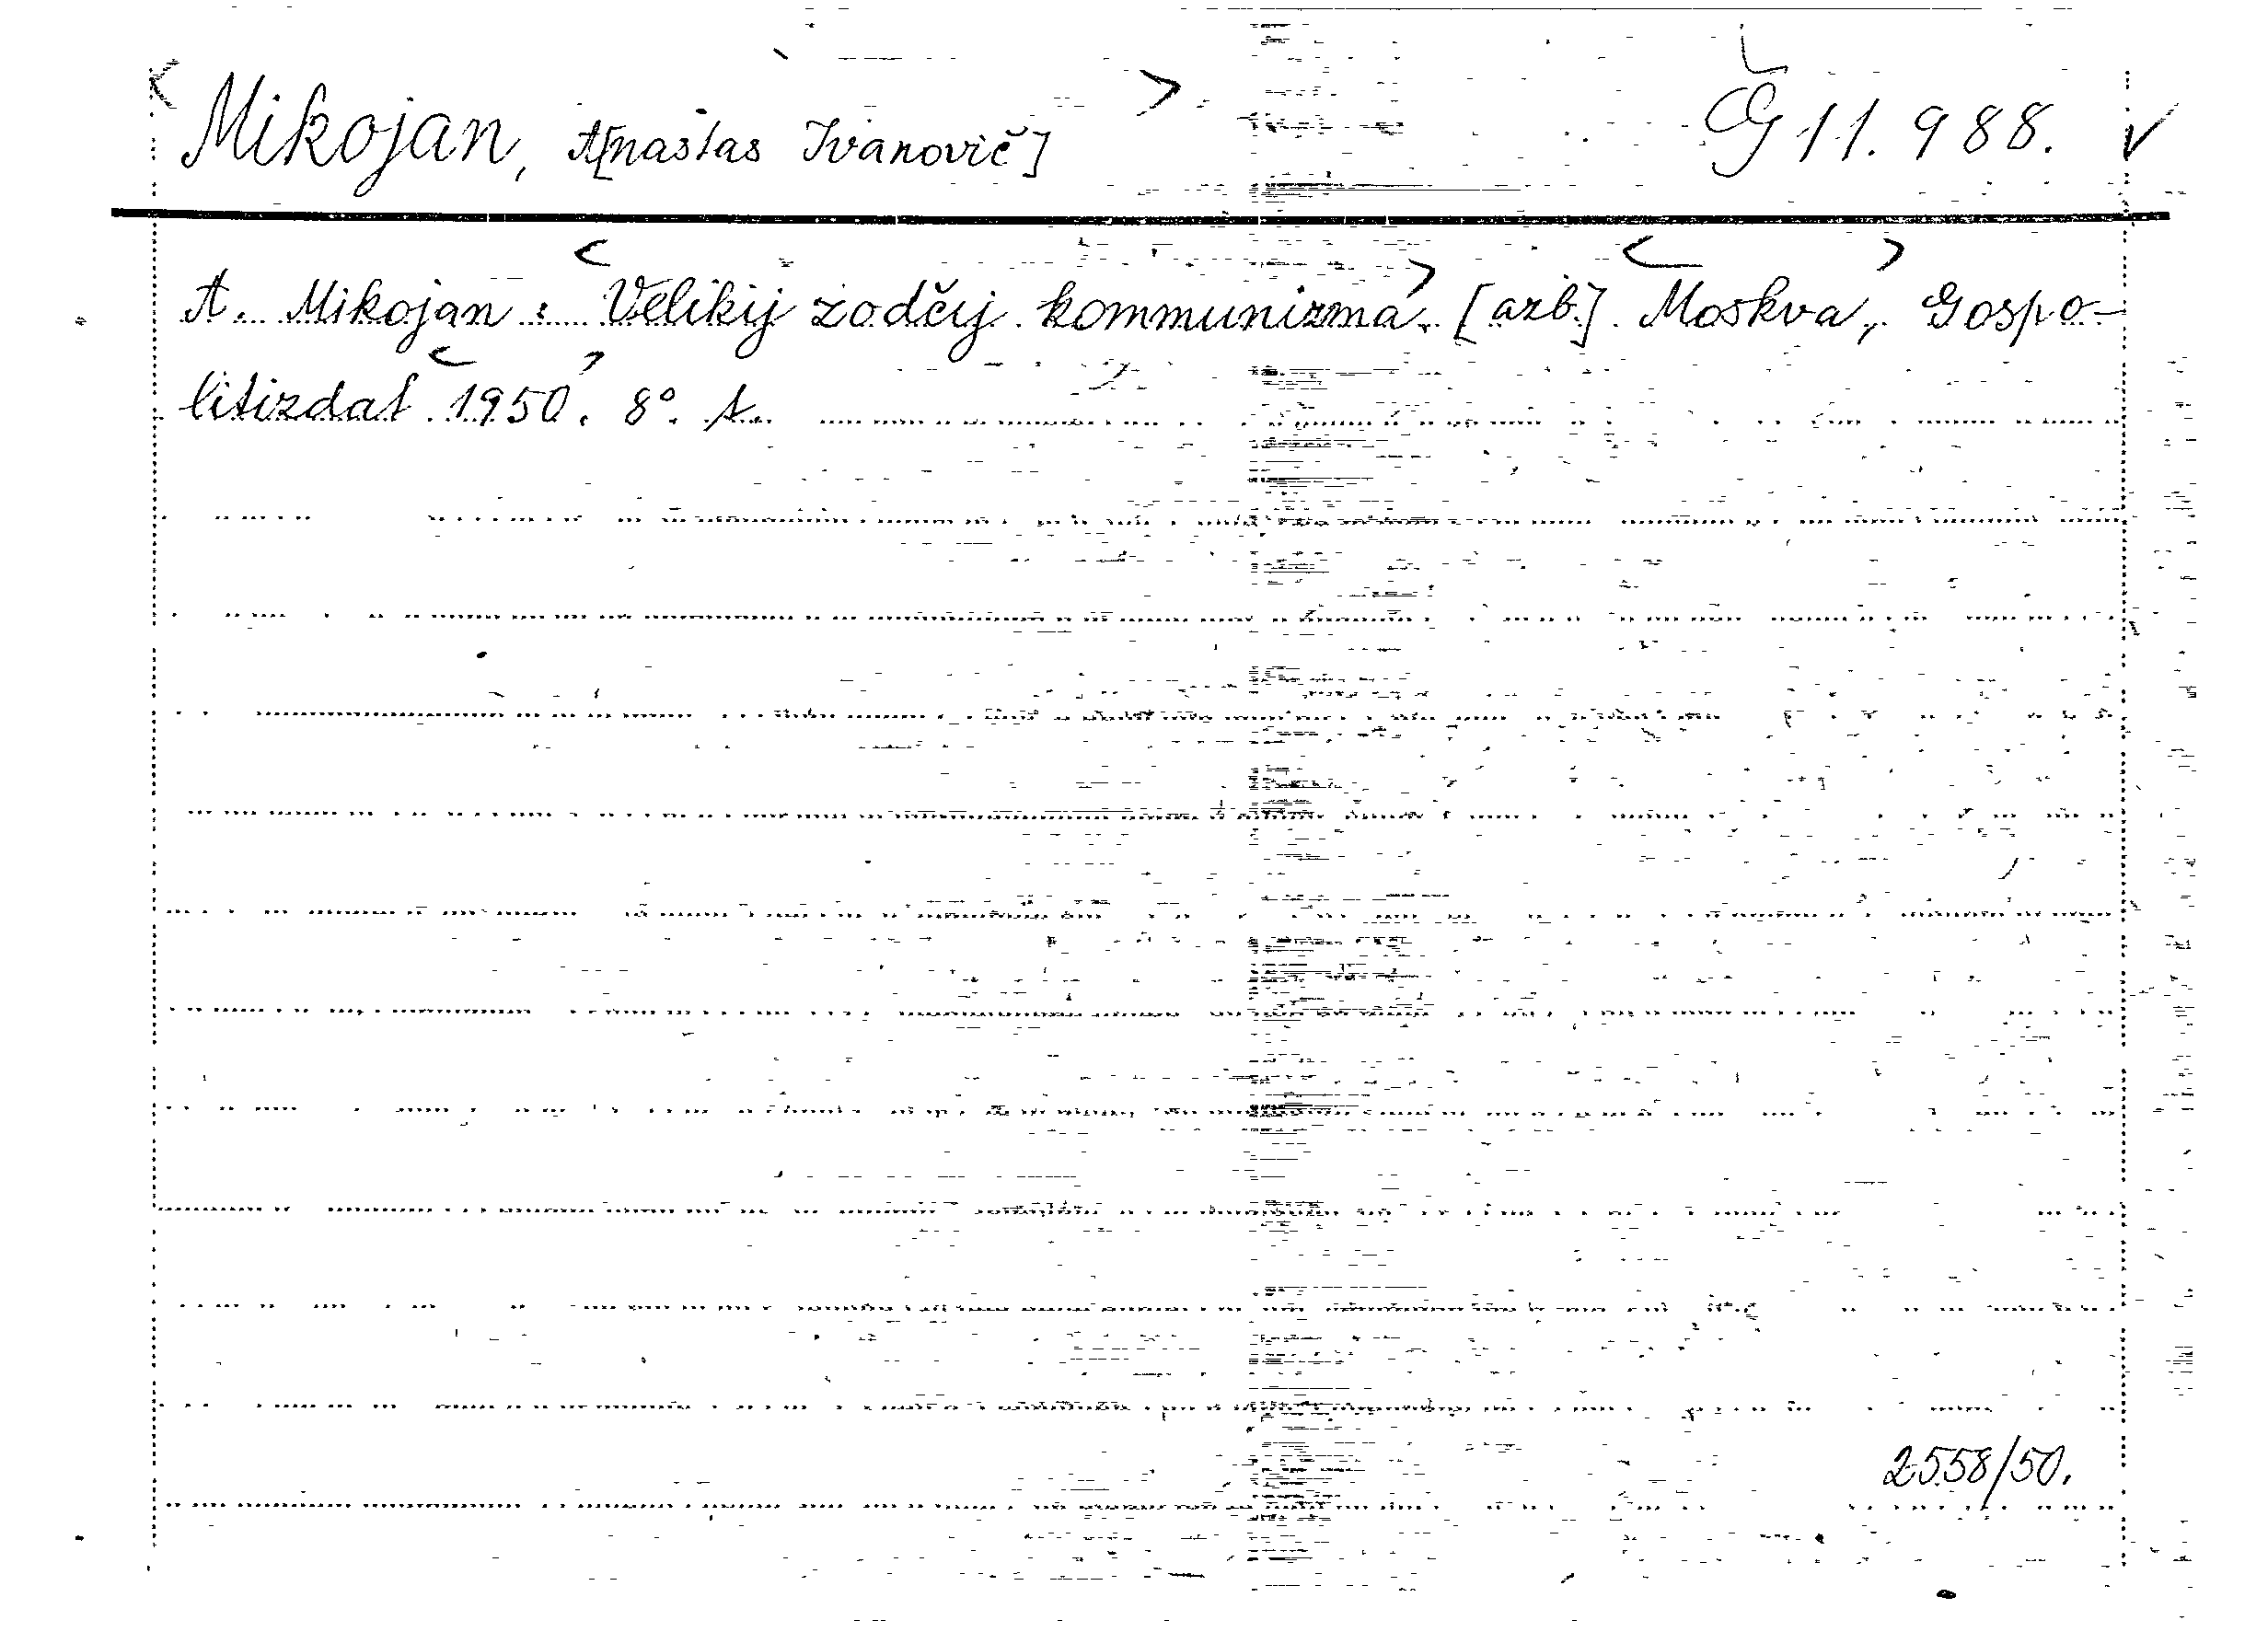 Mikojan, A[nastas Ivanovič] G 11.988.
A. Mikojan: Velikij zodčij kommunizma. [azb.] Moskva, Gospo-
litizdat 1950. 8°. t.
2558/50.